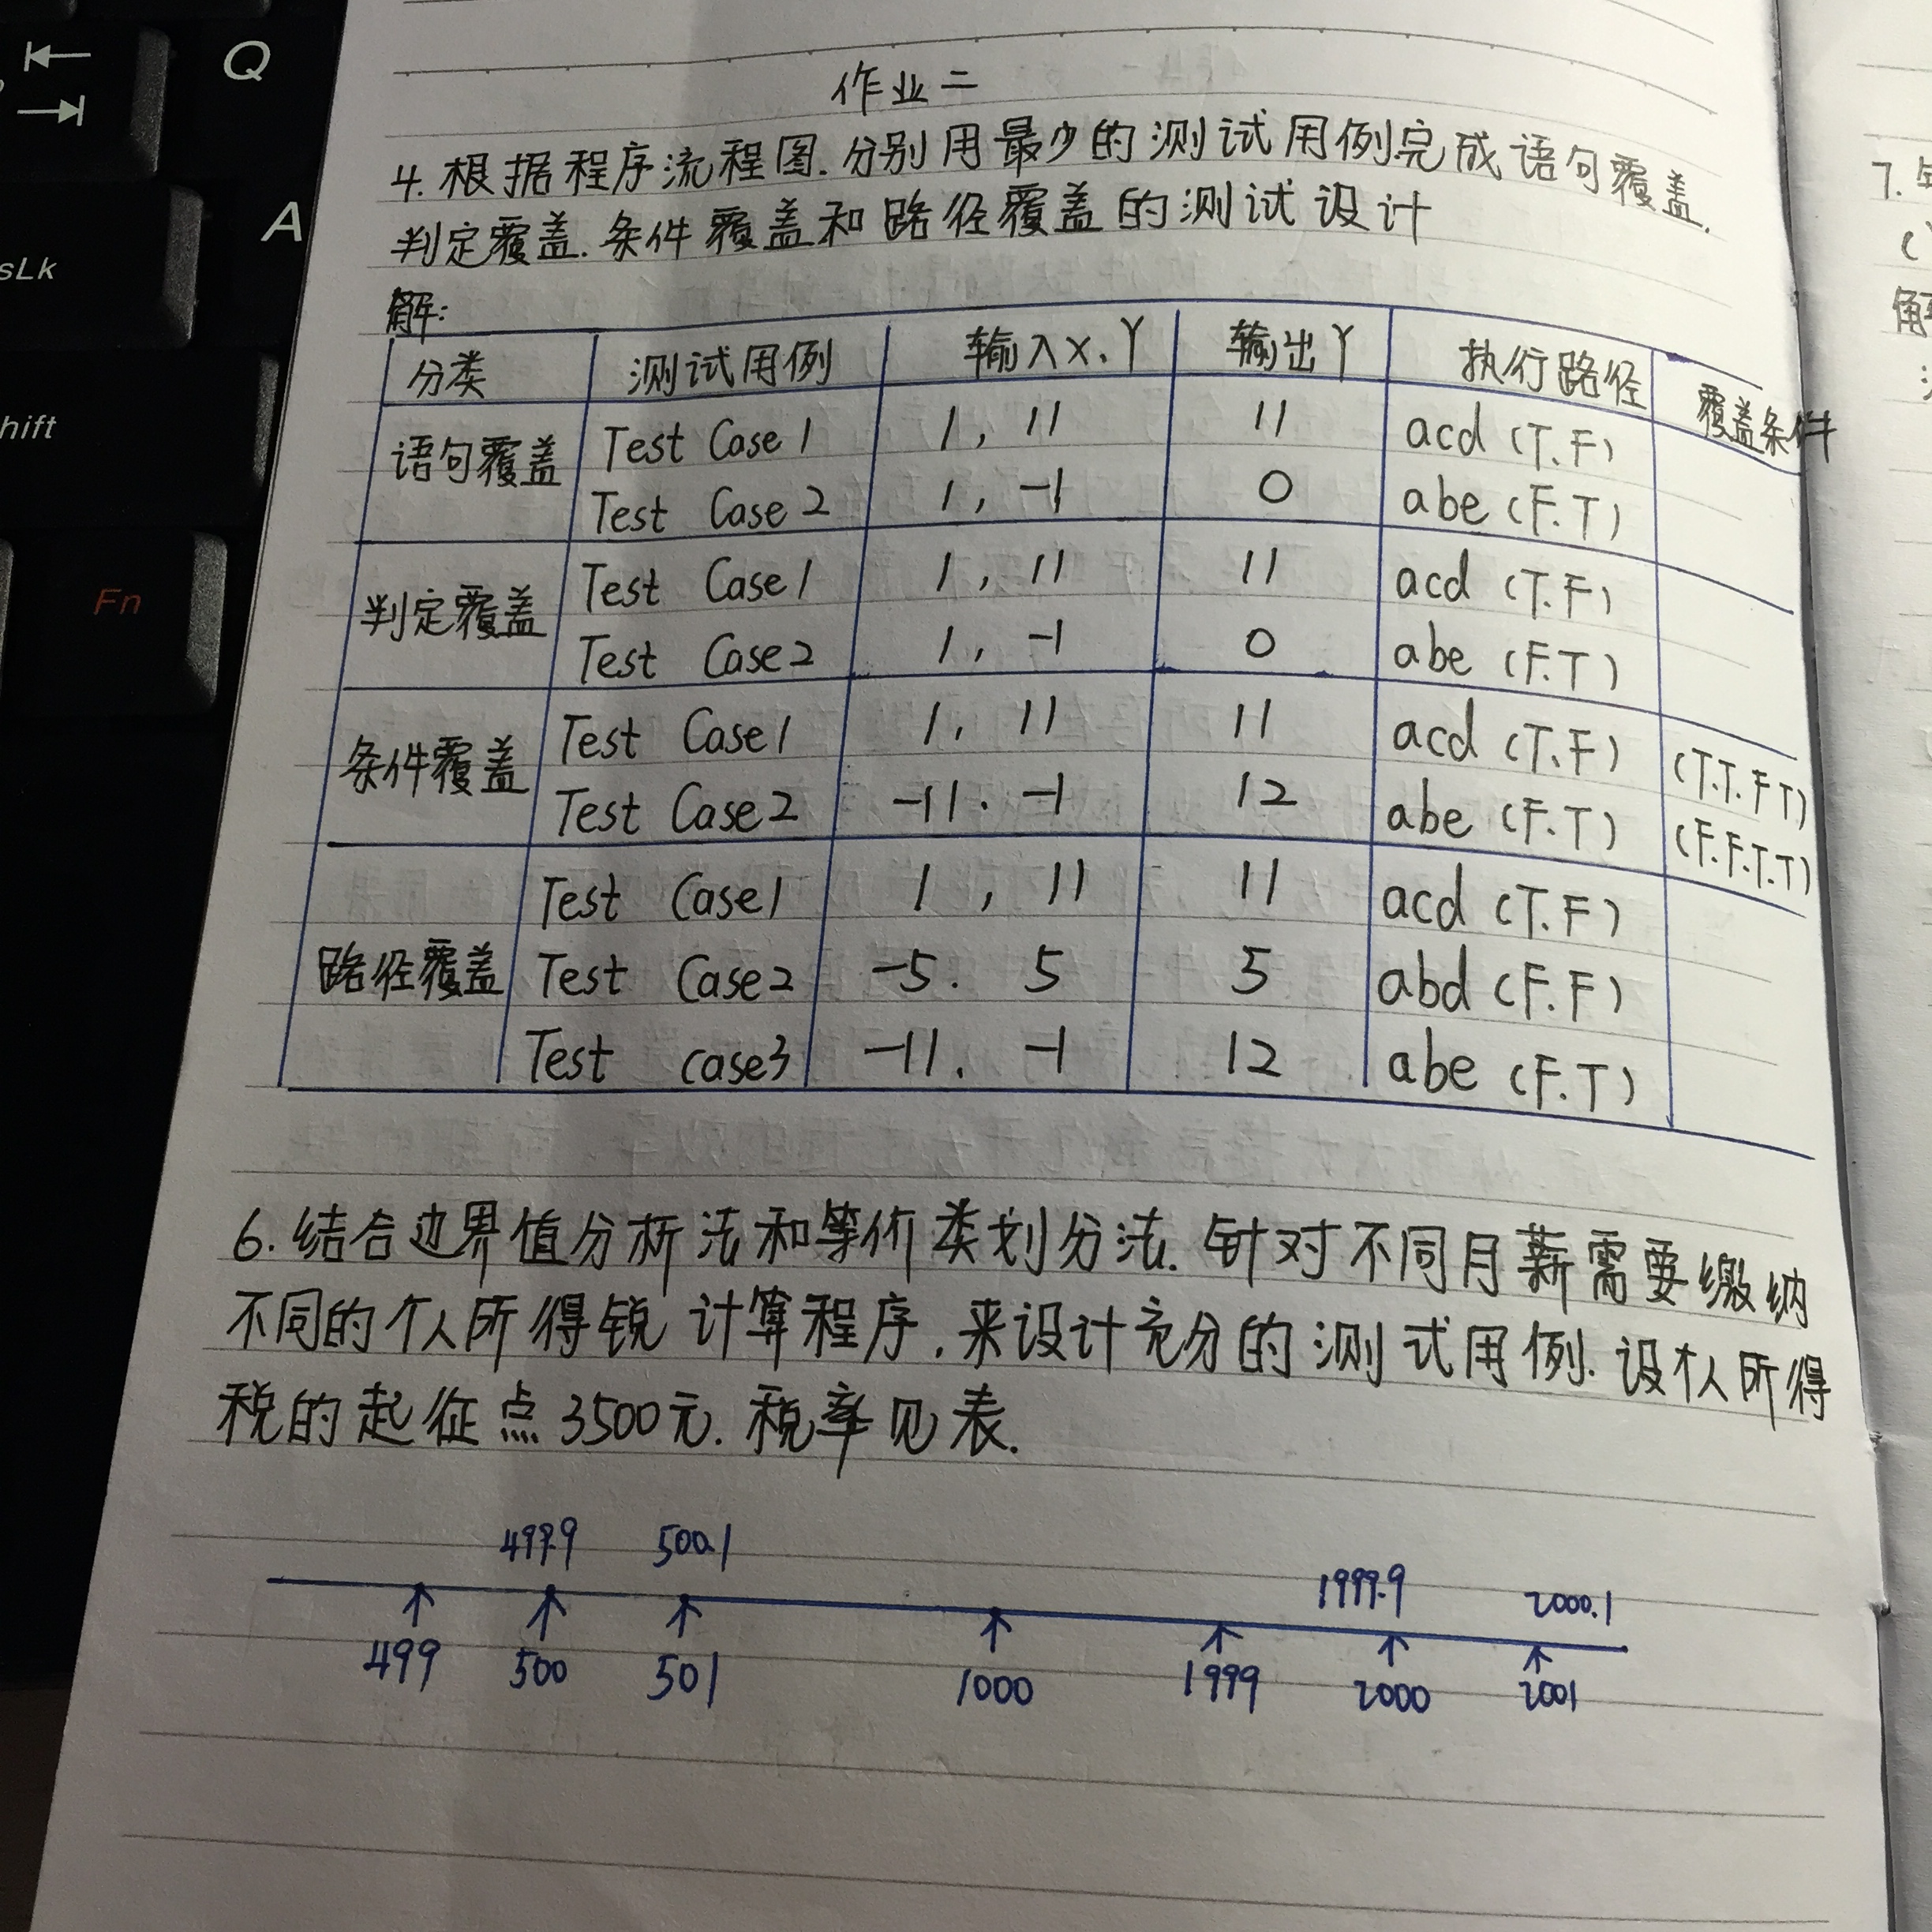 Q
A
sLk
hift
Fn
作业二
4. 根据程序流程图.分别用最少的测试用例完成语句覆盖.
判定覆盖.条件覆盖和路径覆盖的测试设计
解:
分类 测试用例 输入X、Y 输出Y 执行路径 覆盖条件
语句覆盖 Test Case 1 1, 11 11 acd (T.F)
Test Case 2 1, -1 0 abe (F.T)
判定覆盖 Test Case1 1, 11 11 acd (T.F)
Test Case2 1, -1 0 abe (F.T)
条件覆盖 Test Case1 1, 11 11 acd (T.F) (T.T.F T)
Test Case2 -11. -1 12 abe (F.T) (F.F.T.T)
路径覆盖 Test Case1 1, 11 11 acd (T.F)
Test Case2 -5. 5 5 abd (F.F)
Test case3 -11. -1 12 abe (F.T)
6. 结合边界值分析法和等价类划分法.针对不同月薪需要缴纳
不同的个人所得锐计算程序.来设计充分的测试用例.设个人所得
税的起征点3500元.税率见表.
499.9 500.1 1999.9 2000.1
499 500 501 1000 1999 2000 2001
7.